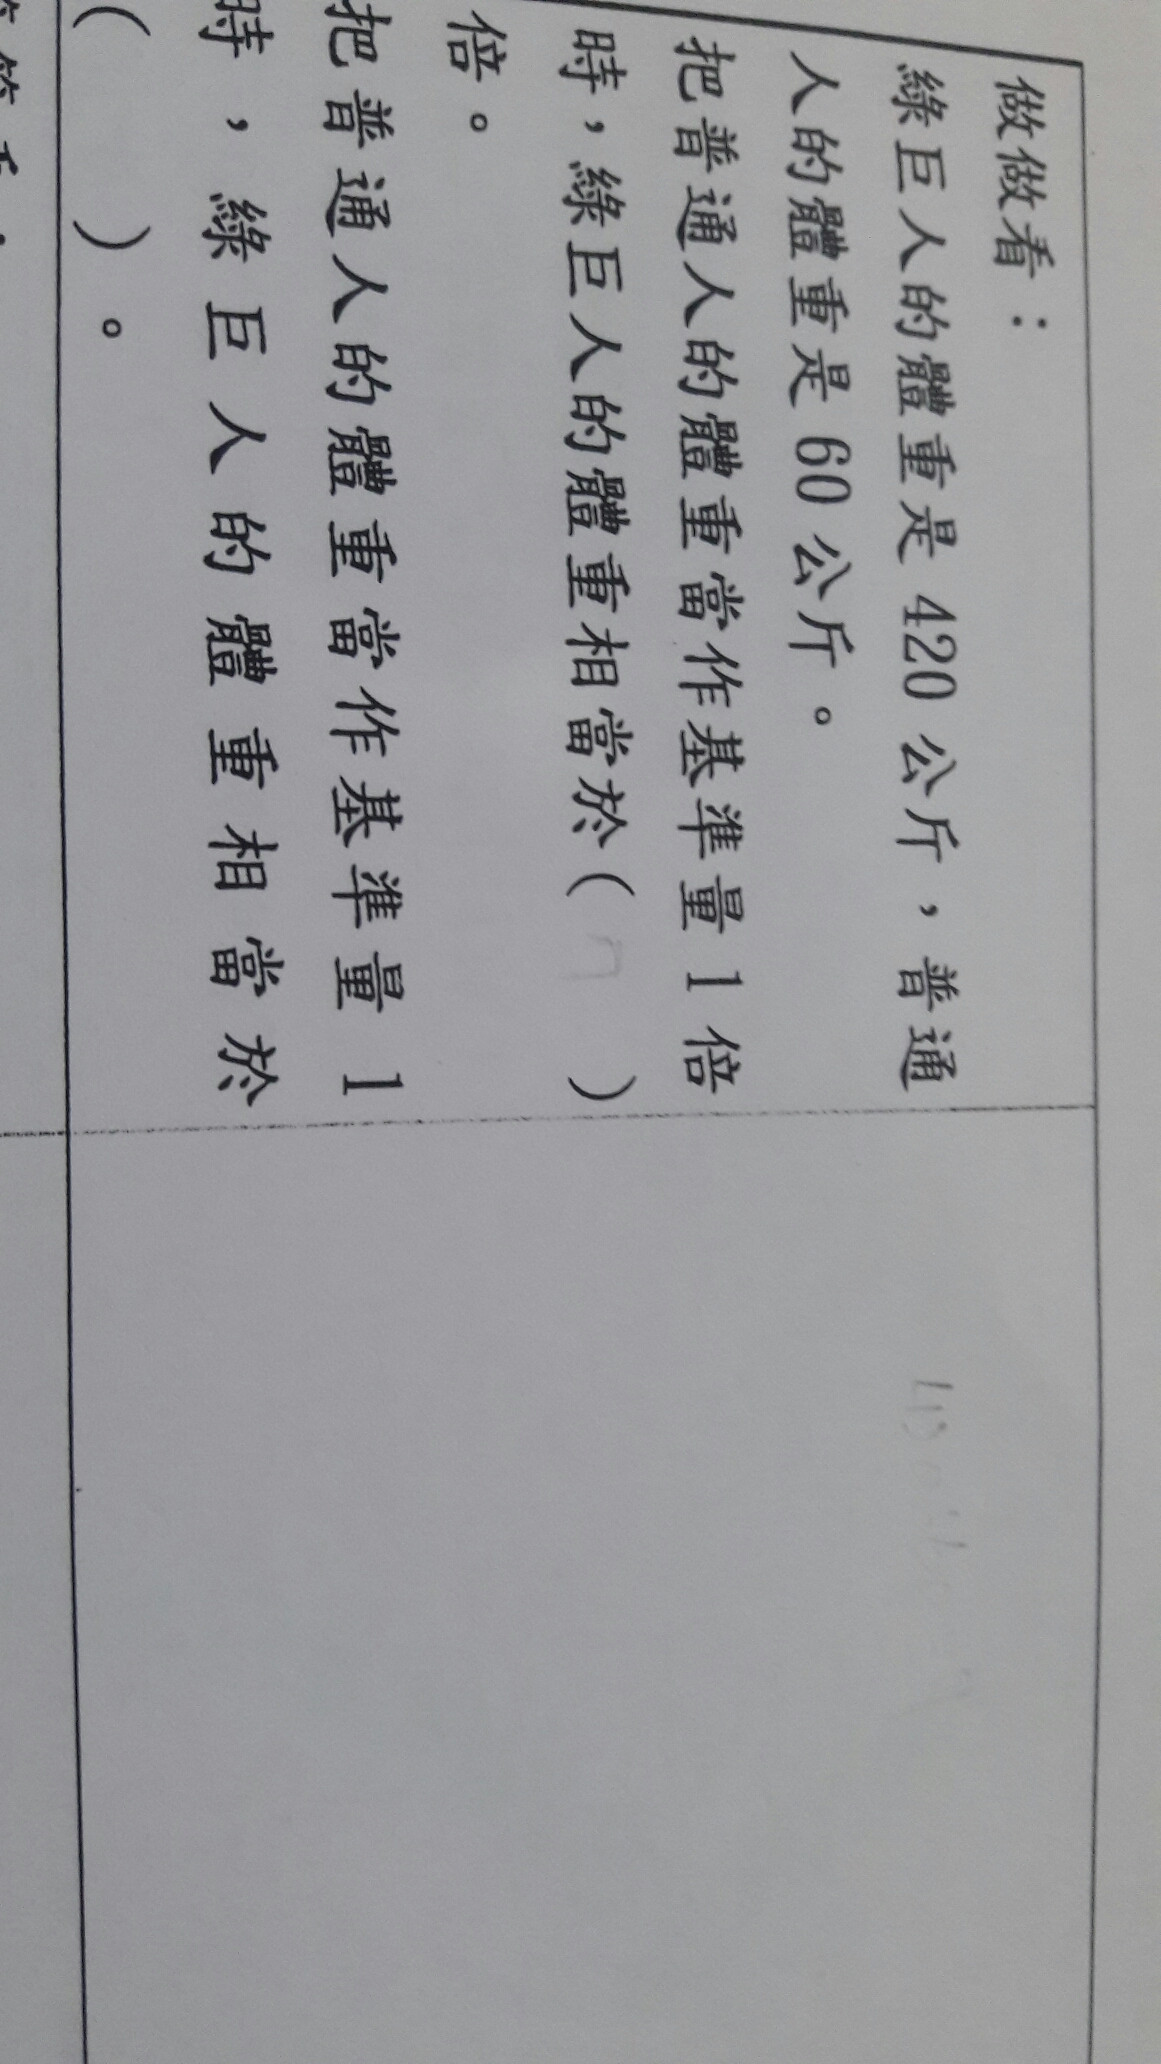 做做看：
綠巨人的體重是 420 公斤，普通
人的體重是 60 公斤。
把普通人的體重當作基準量 1 倍
時，綠巨人的體重相當於( 7 )
倍。
把普通人的體重當作基準量 1
時，綠巨人的體重相當於
( )。